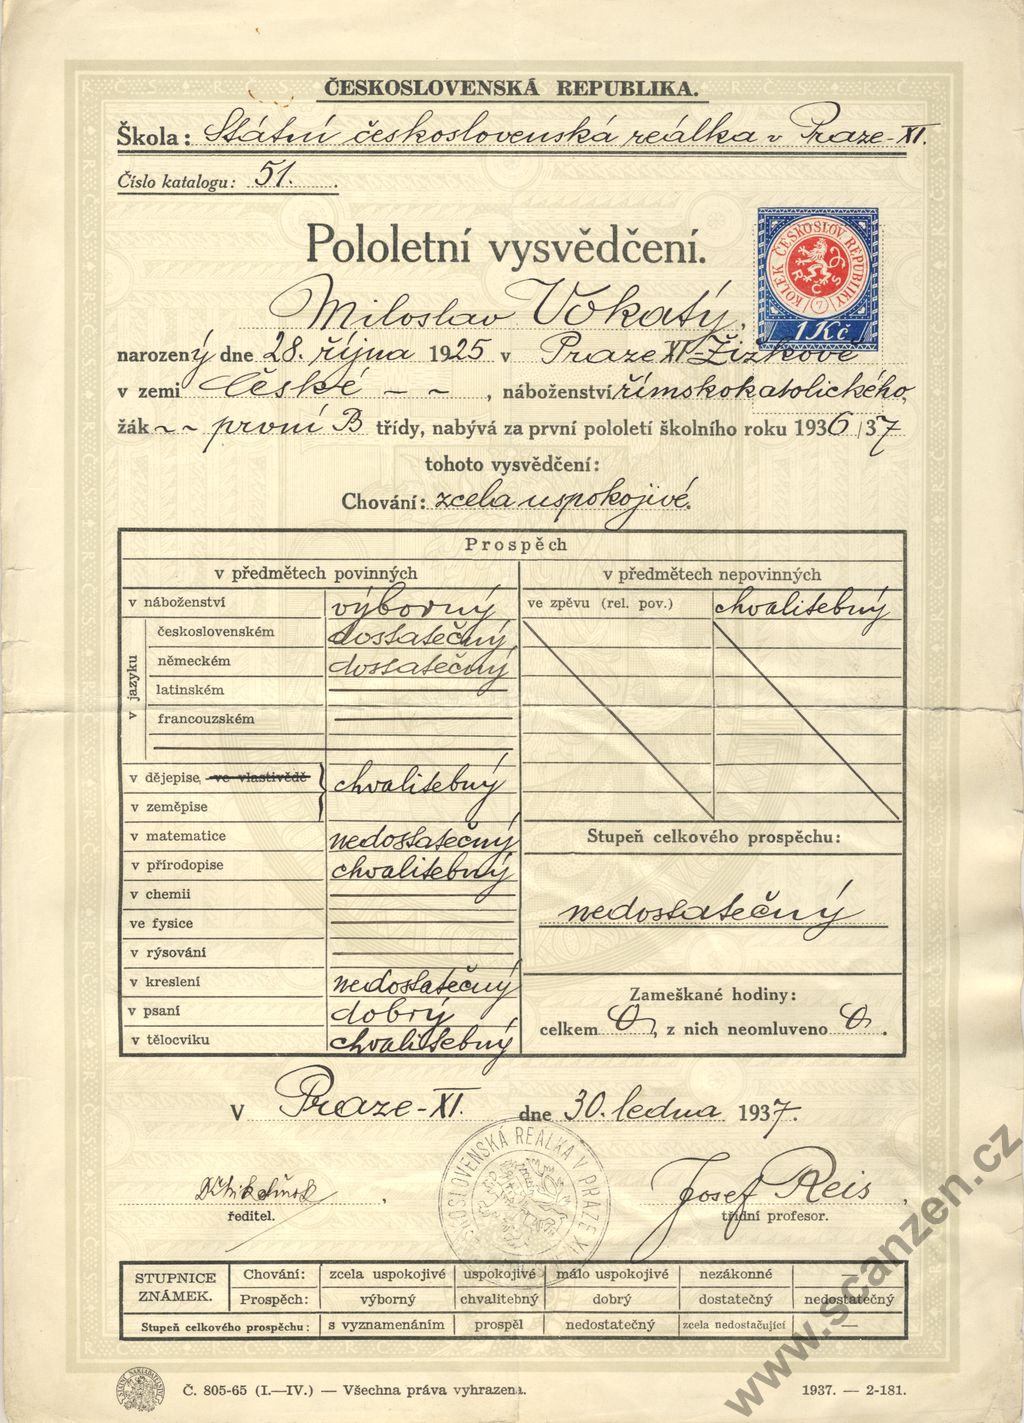 ČESKOSLOVENSKÁ REPUBLIKA.
Škola: Státní československá reálka v Praze-XI.
Číslo katalogu: 51.
KOLEK ČESKOSLOV. REPUBLIKY
R Č S
1 Kč
Pololetní vysvědčení.
Miloslav Vokatý,
narozený dne 28. října 1925 v Praze XI-Žižkově
v zemi České – – , náboženství římskokatolického,
žák ~ ~ první B třídy, nabývá za první pololetí školního roku 1936/37
tohoto vysvědčení:
Chování: zcela uspokojivé.
Prospěch
v předmětech povinných
v předmětech nepovinných
v náboženství výborný
ve zpěvu (rel. pov.) chvalitebný
v jazyku
československém dostatečný
německém dostatečný
latinském
francouzském
v dějepise, ve vlastivědě
v zeměpise
chvalitebný
v matematice nedostatečný
v přírodopise chvalitebný
v chemii
ve fysice
v rýsování
v kreslení nedostatečný
v psaní dobrý
v tělocviku chvalitebný
Stupeň celkového prospěchu:
nedostatečný
Zameškané hodiny:
celkem 0, z nich neomluveno 0.
V Praze-XI. dne 30. ledna 1937.
ředitel.
Josef Reis,
třídní profesor.
OSLOVENSKÁ REÁLKA V PRAZE XI
STUPNICE ZNÁMEK.
Chování: zcela uspokojivé uspokojivé málo uspokojivé nezákonné
Prospěch: výborný chvalitebný dobrý dostatečný nedostatečný
Stupeň celkového prospěchu: s vyznamenáním prospěl nedostatečný zcela nedostačující —
Č. 805-65 (I.—IV.) — Všechna práva vyhrazena.
1937. — 2-181.
www.scanzen.cz